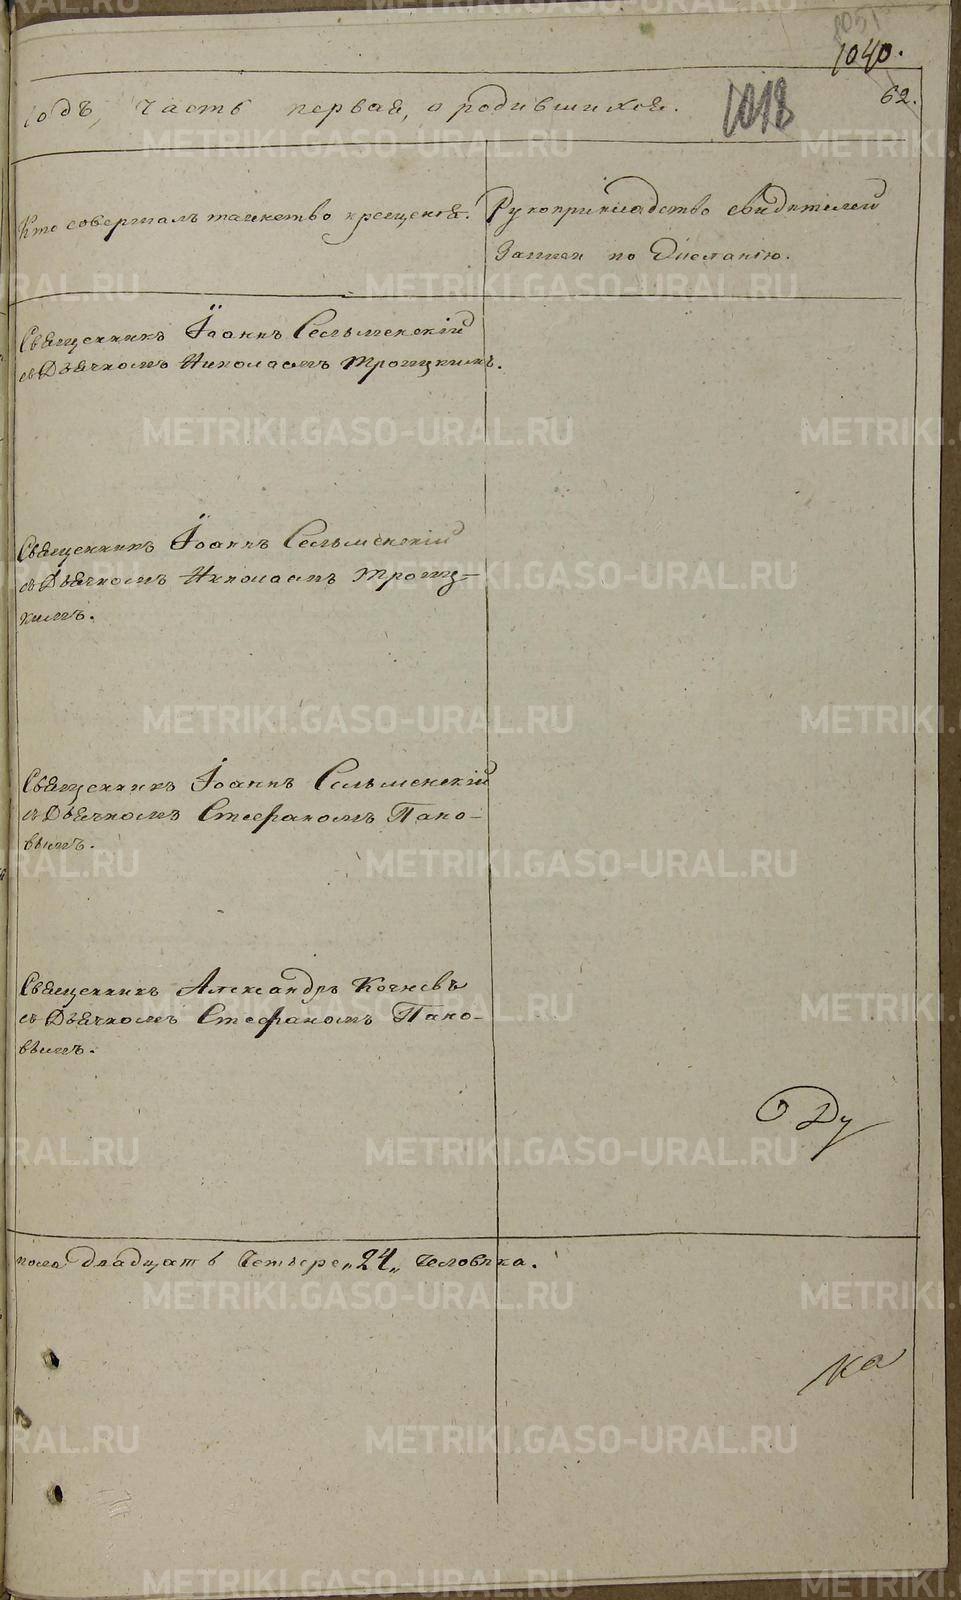 1051
1040.
годъ, часть первая, о родившихся.
1018
62.
Кто совершалъ таинство крещенія.
Рукоприкладство свидѣтелей
записи по желанію.
Священникъ Іоаннъ Сельменскій
съ Дьячкомъ Николаемъ Троицкимъ.
Священникъ Іоаннъ Сельменскій
съ Дьячкомъ Николаемъ Троиц-
кимъ.
Священникъ Іоаннъ Сельменскій
съ Дьячкомъ Стефаномъ Пано-
вымъ.
Священникъ Александръ Кочневъ
съ Дьячкомъ Стефаномъ Пано-
вымъ.
пола двадцать четыре „24„ человѣка.
METRIKI.GASO-URAL.RU